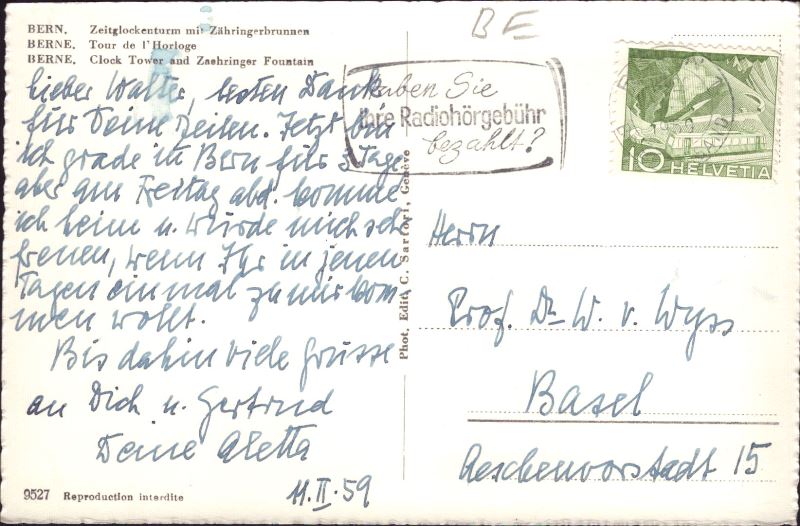 BE
BERN. Zeitglockenturm mit Zähringerbrunnen
BERNE. Tour de l'Horloge
BERNE. Clock Tower and Zaehringer Fountain
lieber Walter, besten Dank
für Deine Zeilen. Jetzt bin
ich grade in Bern für 3 Tage
aber am Freitag abd. komme
ich heim u. würde mich sehr
freuen, wenn Ihr in jenen
Tagen einmal zu mir kom-
men wollt.
Bis dahin viele Grüsse
an Dich u. Gertrud
Deine Aletta
11.II.59
9527 Reproduction interdite
Phot. Edit. C. Sartori, Genève
Haben Sie
Ihre Radiohörgebühr
bezahlt?
10 HELVETIA
Herrn
Prof. Dr. W. v. Wyss
Basel
Aeschenvorstadt 15